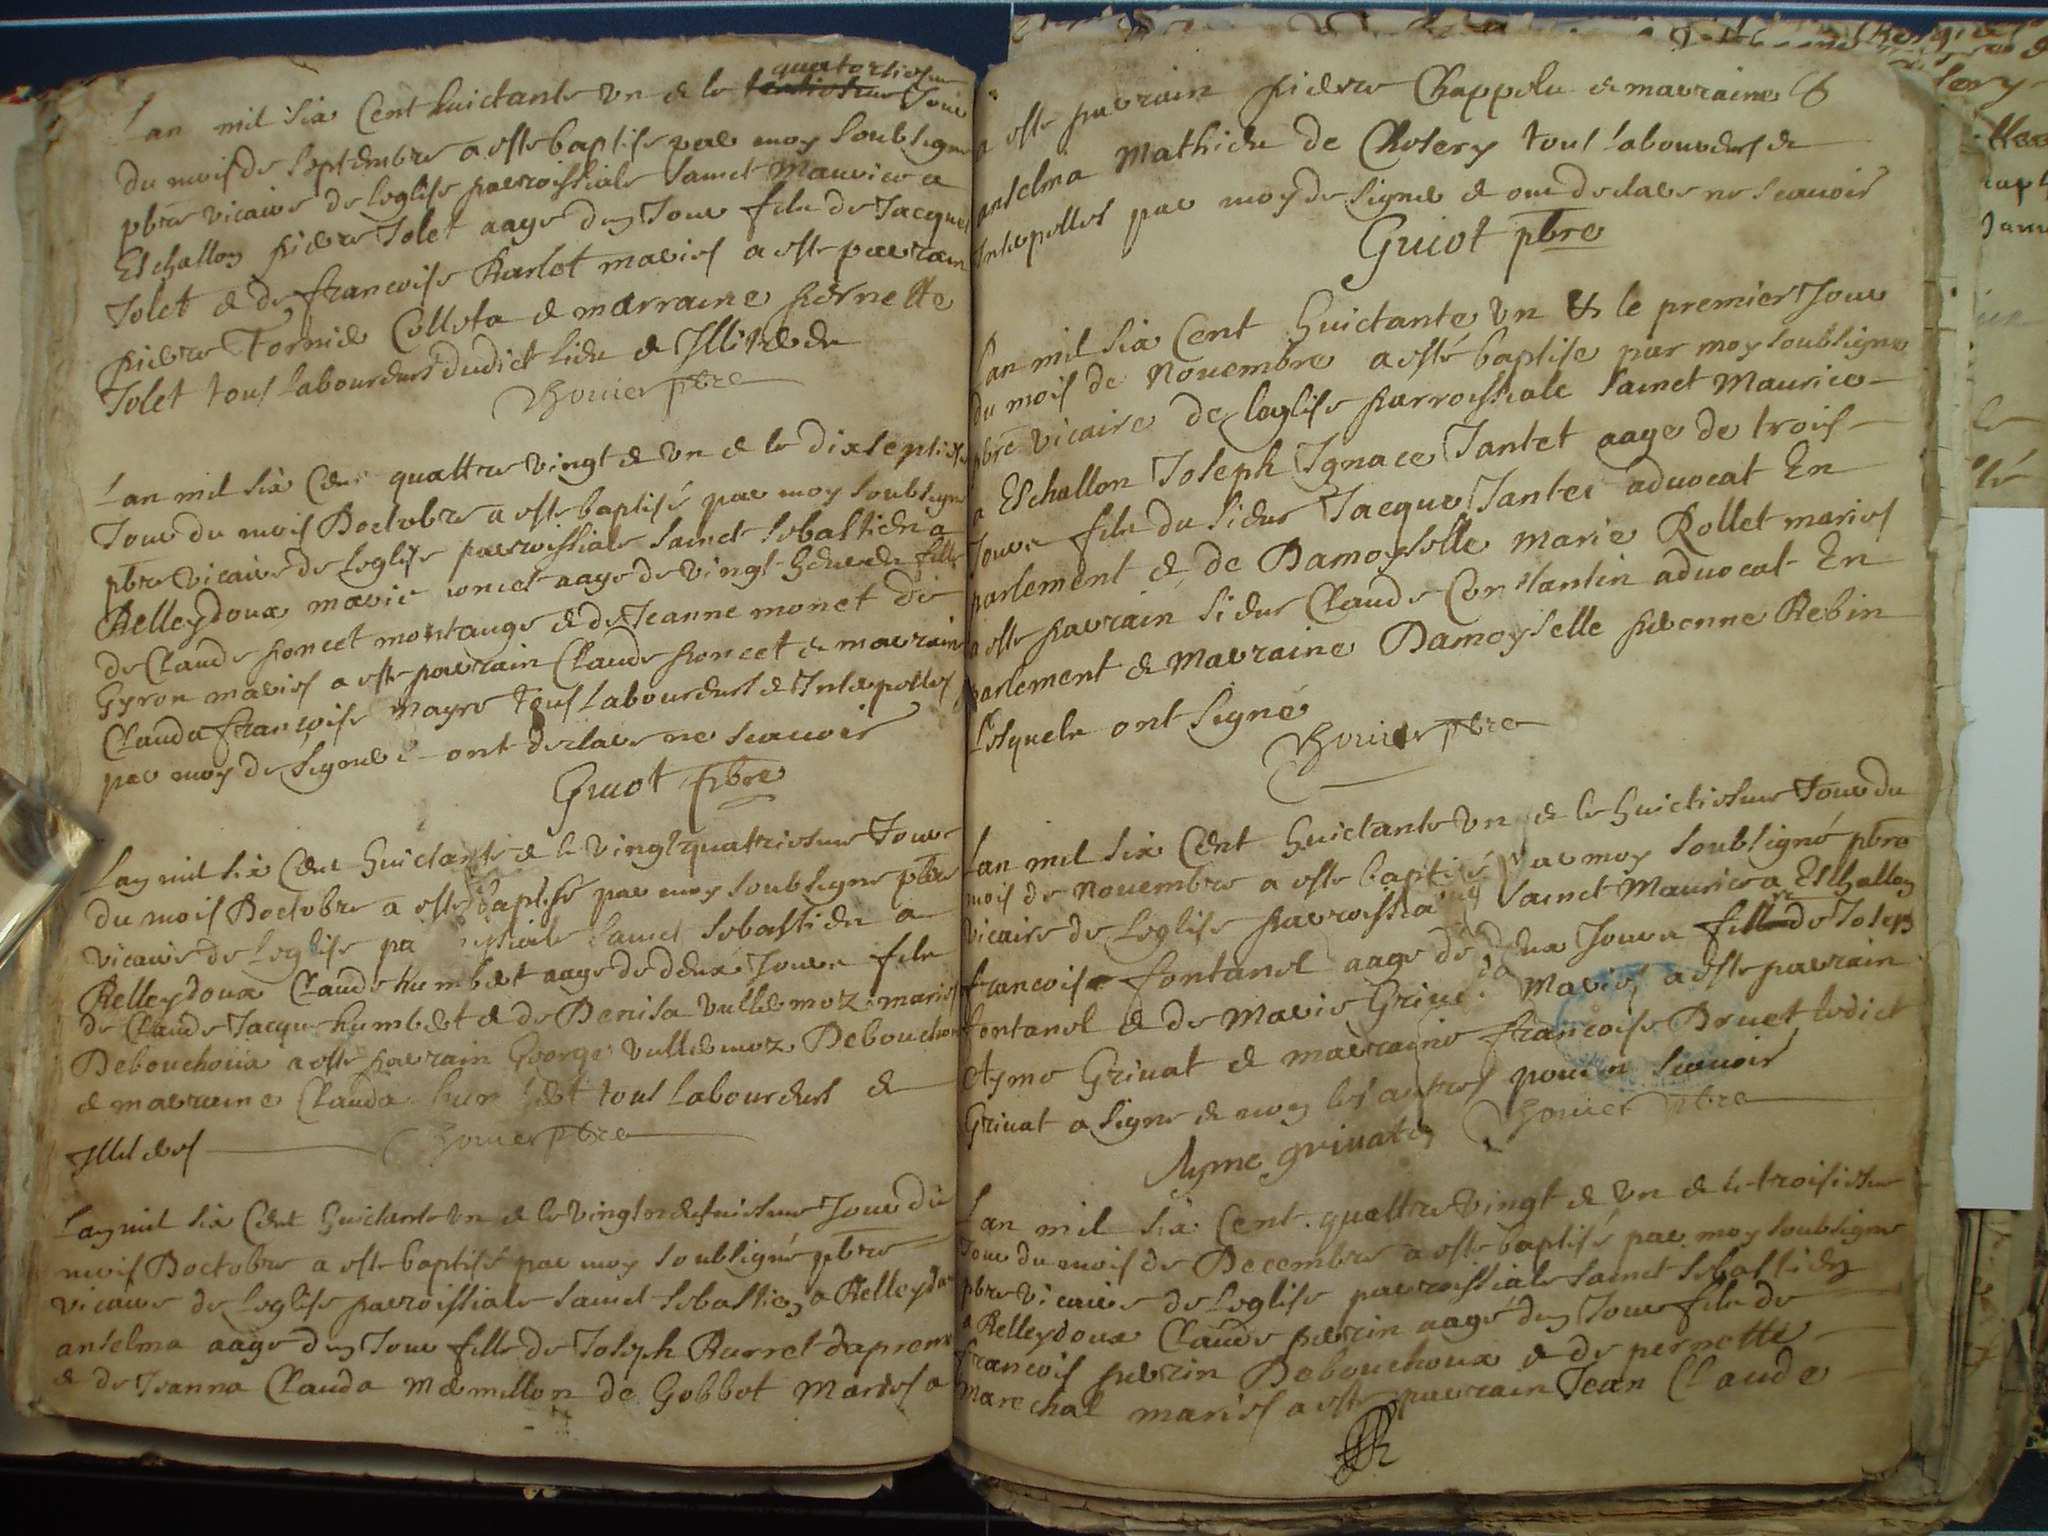 quatorziesme
Lan mil six Cent huictante vn & le Jour
du mois de septembre a este baptise par moy soubsigne
pbre vicaire de leglise parroissiale sainct Maurice a
Eschallon pierre Jolet aage dun Jour filz de Jacques
Jolet & de francoise Burlet mariés a este parrain
pierre Tornier Colleta & marraine pernette
Jolet tous laboureurs dudict lieu & Illiteres
Bouuier pbre
Lan mil six Cent quattre vingt & vn & le dixseptiesme
Jour du mois Doctobre a este baptisé par moy soubsigne
pbre vicaire de leglise parroissiale sainct sebastien a
Belleydoux marie poncet aage de vingt heures fille
de Claude poncet montange & de Jeanne monet die
Gyron mariés a este parrain Claude poncet & marraine
Clauda francoise mayre tous laboureurs & Interpelles
par moy de signer & ont declare ne scauoir
Guiot pbre
Lan mil six Cent huictante & le vingtquattriesme Jour
du mois Doctobre a este baptisé par moy soubsigne pbre
vicaire de leglise parroissiale sainct sebastien a
Belleydoux Claude humbert aage de deux Jours filz
de Claude Jacque humbert & de Denisa vuillermoz mariés
Debouchoux a este parrain George vuillermoz Debouchoux
& marraine Clauda humbert tous laboureurs &
Illiteres Bouuier pbre
Lan mil six Cent huictante vn & le vingtneufuiesme Jour du
mois Doctobre a este baptisé par moy soubsigné pbre
vicaire de leglise parroissiale sainct sebastien a Belleydoux
anselma aage dun Jour fille de Joseph Burret dapremont
& de Jeanna Clauda mermillon de Gobbet mariés a
a este parrain pierre Chappelu & marraine
anselma Mathieu de Chosery tous laboureurs &
Interpelles par moy de signer & ont declare ne scauoir
Guiot pbre
Lan mil six Cent huictante vn & le premier Jour
du mois de Nouembre a esté baptise par moy soubsigne
pbre vicaire de leglise parroissiale sainct Maurice
a Eschallon Joseph Ignace Jantet aage de trois
Jours filz du sieur Jacque Jantet aduocat En
parlement & de Damoyselle marie Rollet mariés
a este parrain sieur Claude Constantin aduocat En
parlement & marraine Damoyselle pienne Rebin
lesquels ont signé
Bouuier pbre
Lan mil six Cent huictante vn & le huictiesme Jour du
mois de Nouembre a este baptisé par moy soubsigné pbre
vicaire de leglise parroissiale sainct Maurice a Eschallon
francois fontanel aage de deux Jours de Joseph
fontanel & de marie Griuat mariés a este parrain
Aymo Griuat & marraine francoise Druet ledict
Griuat a signe & non les autres pour ne scauoir
Ayme griuat Bouuier pbre
Lan mil six Cent quattre vingt & vn & le troisiesme
Jour du mois de Decembre a este baptisé par moy soubsigne
pbre vicaire de leglise parroissiale sainct sebastien
a Belleydoux Claude perrin aagé dun Jour filz de
francois perrin Debouchoux & de pernette
marechal mariés a este parrain Jean Claude